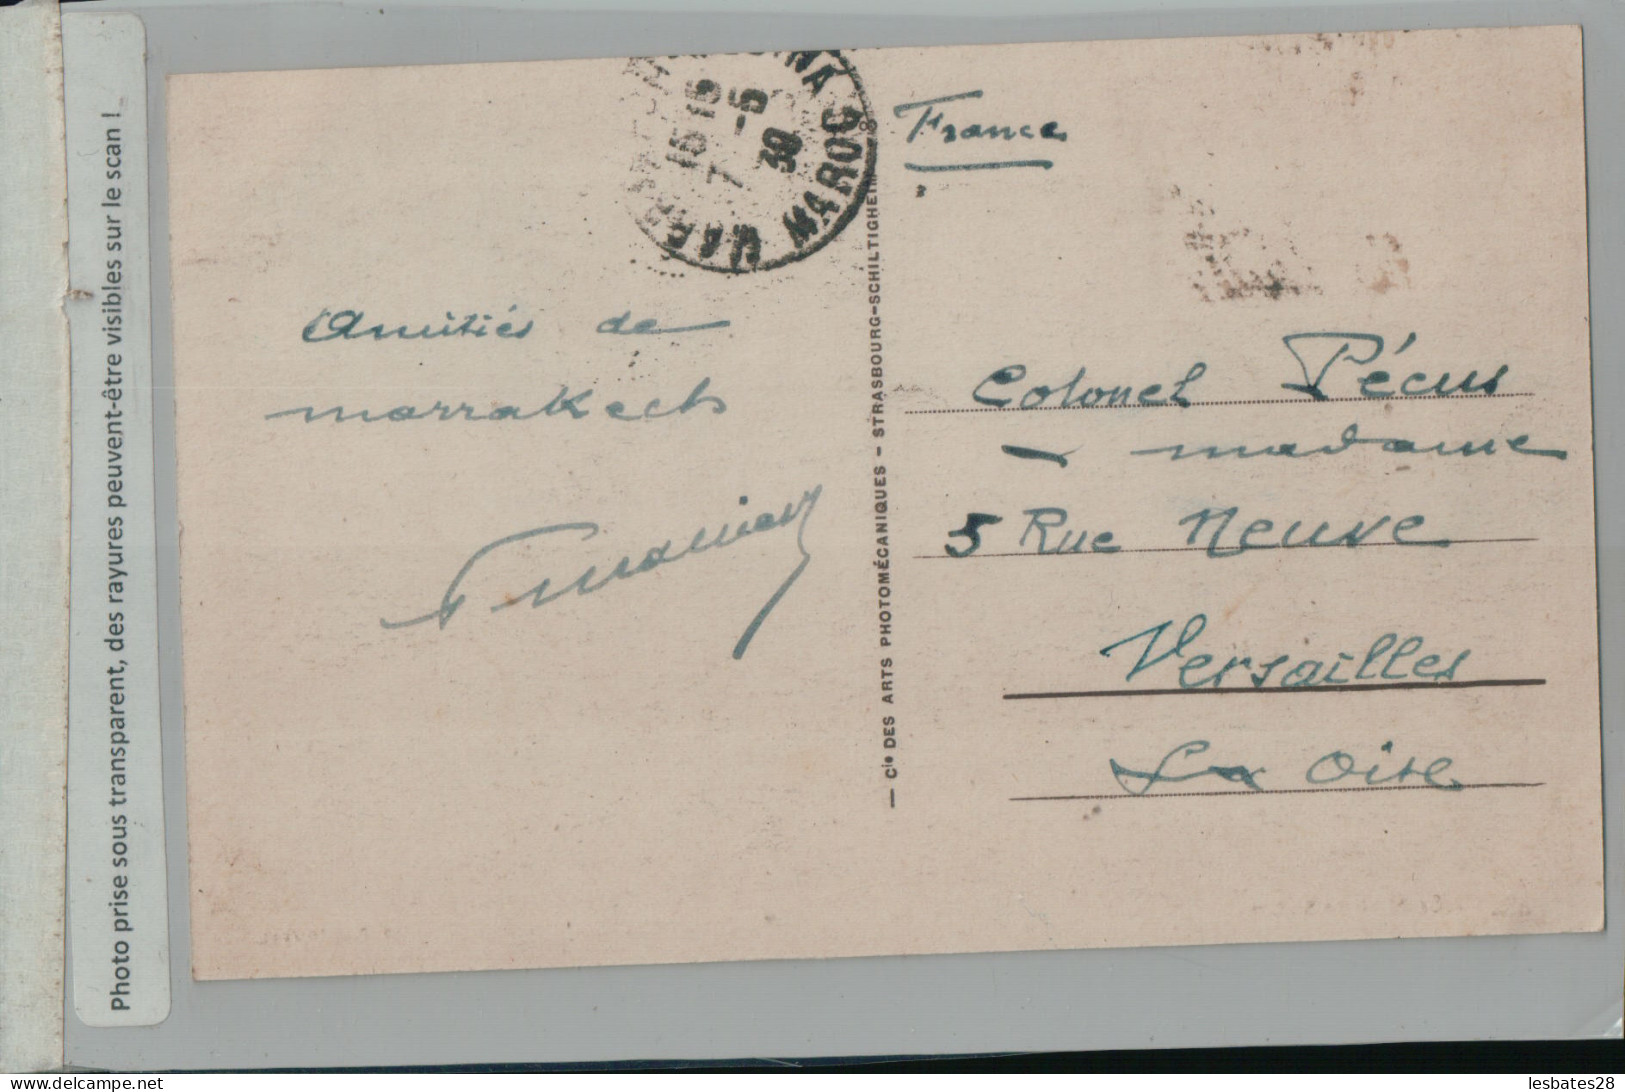 Photo prise sous transparent, des rayures peuvent-être visibles sur le scan !
15 15
7 -5
39
MAROC
France
Amitiés de
marrakech
Colonel Pécus
madame
5 Rue Neuve
Versailles
Oise
— Cie DES ARTS PHOTOMÉCANIQUES – STRASBOURG–SCHILTIGHEIM
lesbates28